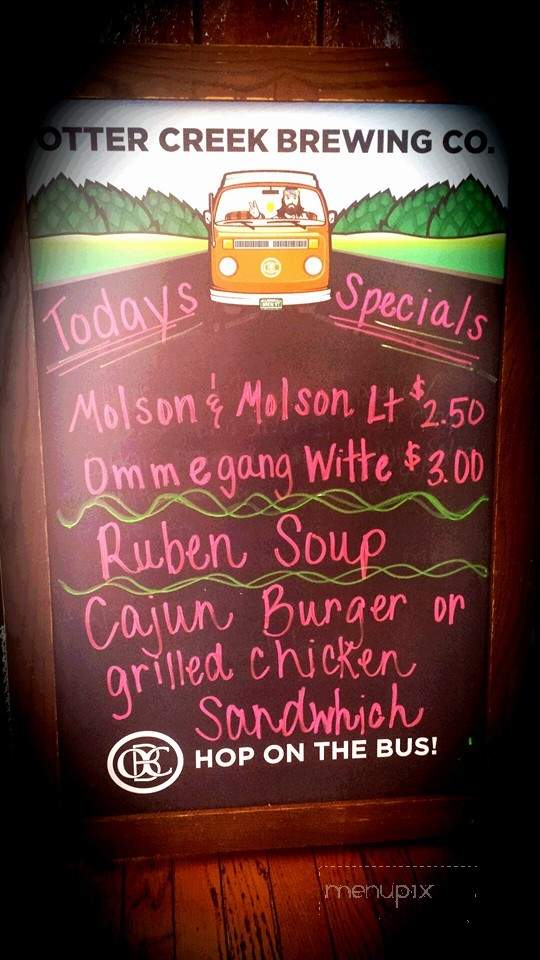 OTTER CREEK BREWING CO.
Todays Specials
Molson & Molson Lt $2.50
Ommegang Witte $3.00
Ruben Soup
Cajun Burger or
grilled chicken
Sandwhich
OCBC HOP ON THE BUS!
menupix